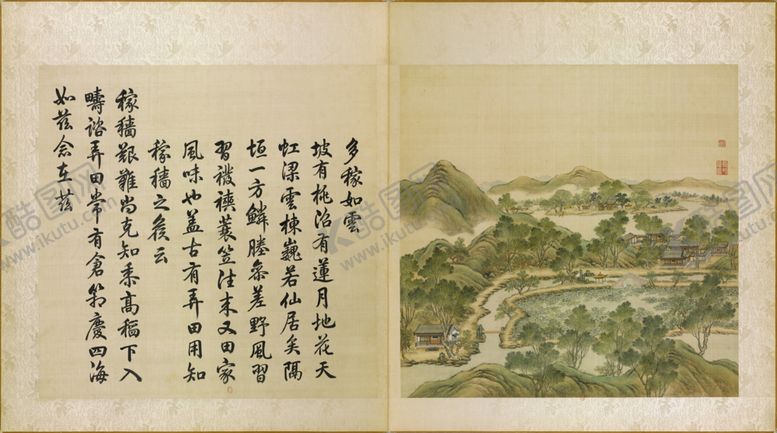 多稼如雲
坡有桃沼有蓮月地花天
虹梁雲棟巍若仙居矣隔
垣一方鱗塍參差野風習
習襏襫蓑笠往來又田家
風味也蓋古有弄田用知
稼穡之候云
稼穡艱難尚克知黍高稻下入
疇諮弄田常有倉箱慶四海
如茲念在茲
酷图网
www.ikutu.com